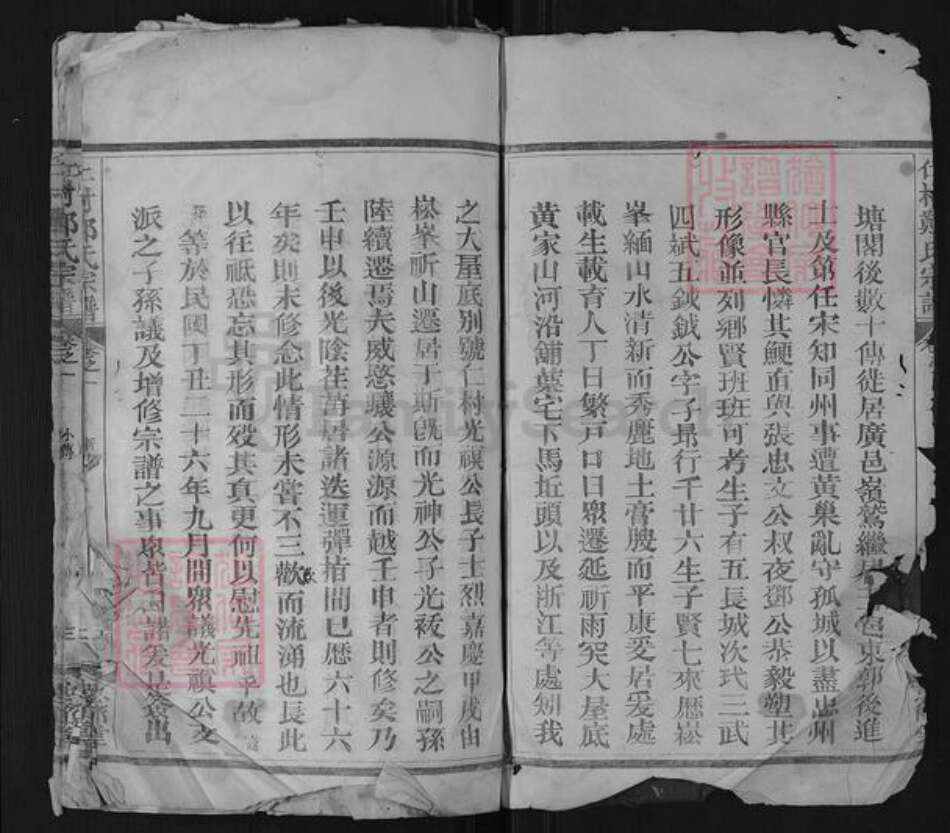 塘閣後數十傳徙居廣邑嶺鷲繼居邑東郭後進
士及第任宋知同州事遭黃巢亂守孤城以盡忠州
縣官長憐其鯁直與張忠文公叔夜鄧公恭毅塑其
形像並列鄉賢班班可考生子有五長城次式三武
四斌五鉞鉞公字子昂行千廿六生子賢七來歷崧
峯緬山水清新而秀麗地土膏腴而平康爰居爰處
載生載育人丁日繁戶口日眾遷延祈雨突大屋底
黃家山河沿鋪葉宅下馬坵頭以及浙江等處矧我
之大屋底別號仁村光禩公長子士烈嘉慶甲戌由
崧峯祈山遷居于斯既而光神公子光祓公之嗣孫
陸續遷焉夫威愨驤公源源而越壬申者則修矣乃
壬申以後光陰荏苒居諸迭運彈指間已歷六十六
年矣則未修念此情形未嘗不三歎而流涌也長此
以往祇恐忘其形而歿其真更何以慰先祖乎故
等於民國丁丑二十六年九月開眾議光禩公支
派之子孫議及增修宗譜之事眾皆爰是僉出
仁村鄭氏宗譜
卷之一
FamilySearch